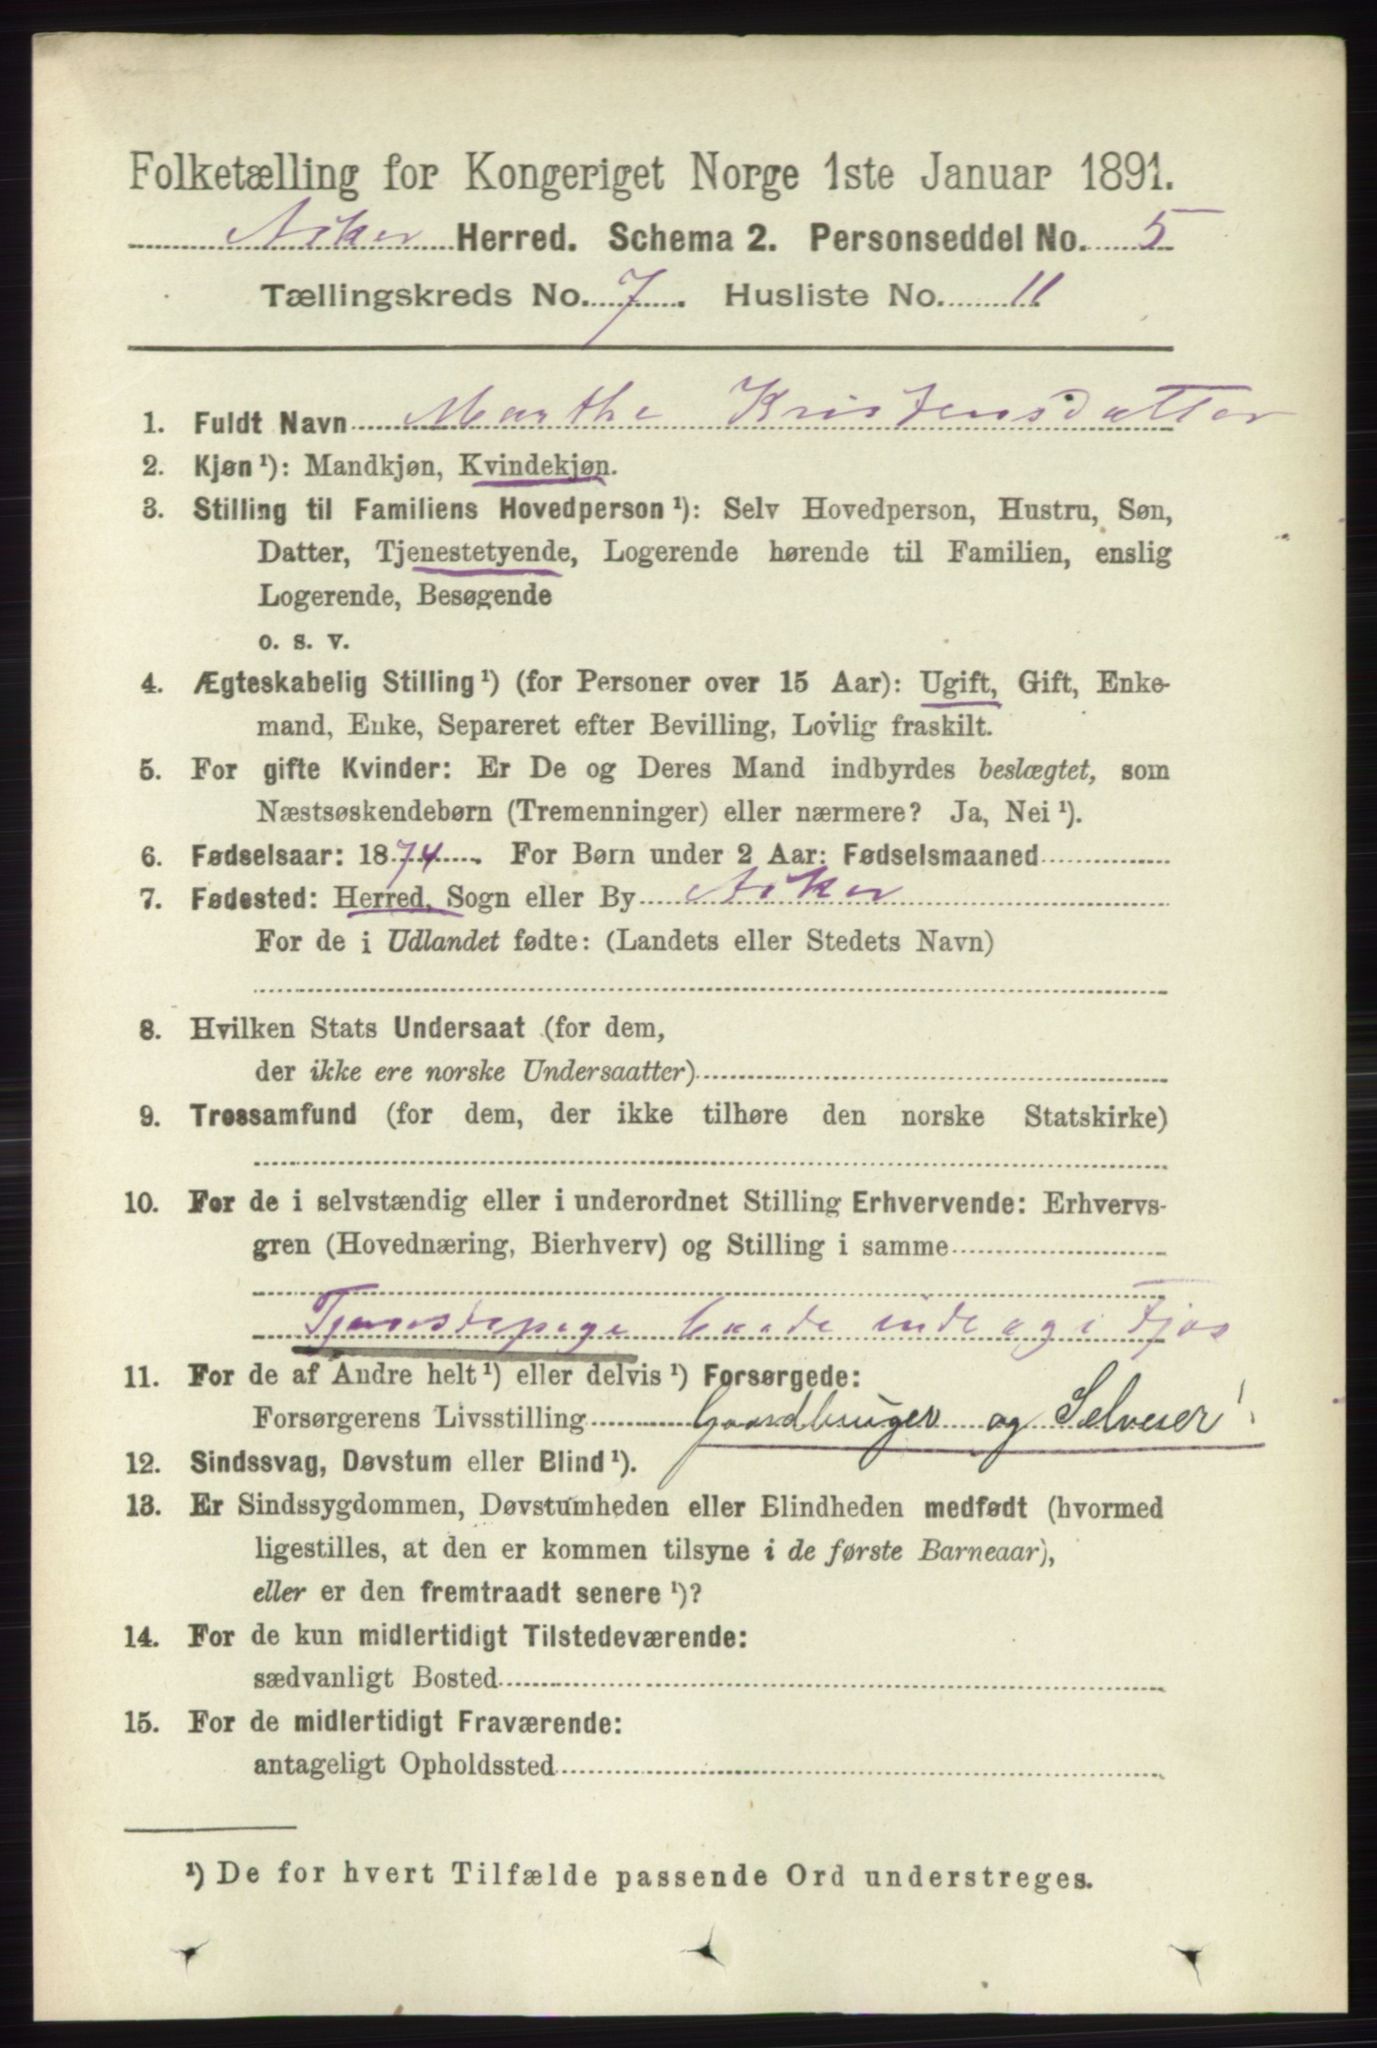 Folketælling for Kongeriget Norge 1ste Januar 1891.
Asker Herred. Schema 2. Personseddel No. 5
Tællingskreds No. 7. Husliste No. 11
1. Fuldt Navn Marthe Kristensdatter
2. Kjøn¹): Mandkjøn, Kvindekjøn.
3. Stilling til Familiens Hovedperson¹): Selv Hovedperson, Hustru, Søn,
Datter, Tjenestetyende, Logerende hørende til Familien, enslig
Logerende, Besøgende
o. s. v.
4. Ægteskabelig Stilling¹) (for Personer over 15 Aar): Ugift, Gift, Enke-
mand, Enke, Separeret efter Bevilling, Lovlig fraskilt.
5. For gifte Kvinder: Er De og Deres Mand indbyrdes beslægtet, som
Næstsøskendebørn (Tremenninger) eller nærmere? Ja, Nei¹).
6. Fødselsaar: 1874. For Børn under 2 Aar: Fødselsmaaned
7. Fødested: Herred, Sogn eller By Asker
For de i Udlandet fødte: (Landets eller Stedets Navn)
8. Hvilken Stats Undersaat (for dem,
der ikke ere norske Undersaatter)
9. Trossamfund (for dem, der ikke tilhøre den norske Statskirke)
10. For de i selvstændig eller i underordnet Stilling Erhvervende: Erhvervs-
gren (Hovednæring, Bierhverv) og Stilling i samme
Tjenestepige baade inde og i Fjøs
11. For de af Andre helt¹) eller delvis¹) Forsørgede:
Forsørgerens Livsstilling Gaardbruger og Selveier
12. Sindssvag, Døvstum eller Blind¹).
13. Er Sindssygdommen, Døvstumheden eller Blindheden medfødt (hvormed
ligestilles, at den er kommen tilsyne i de første Barneaar),
eller er den fremtraadt senere¹)?
14. For de kun midlertidigt Tilstedeværende:
sædvanligt Bosted
15. For de midlertidigt Fraværende:
antageligt Opholdssted
¹) De for hvert Tilfælde passende Ord understreges.